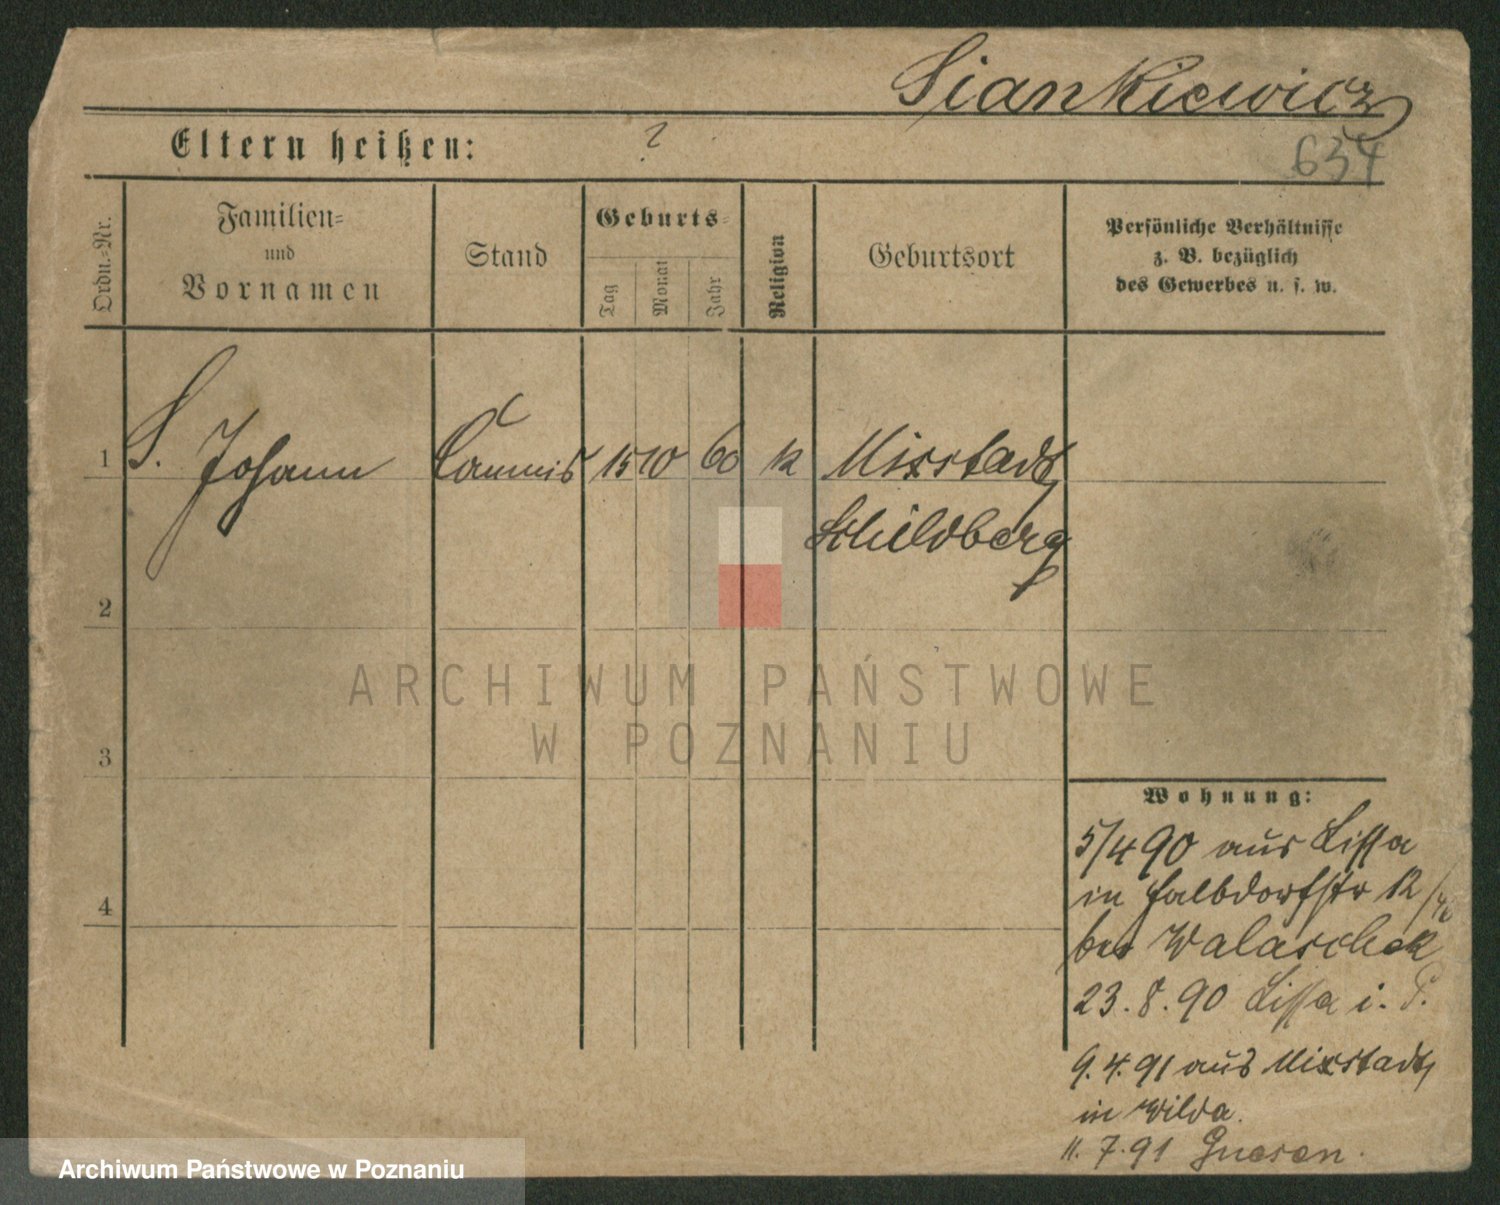 Siankiewicz
Eltern heißen: ?
654
Ordn.-Nr.
Familien-
und
Vornamen
Stand
Geburts-
Tag
Monat
Jahr
Religion
Geburtsort
Persönliche Verhältnisse
z. B. bezüglich
des Gewerbes u. s. w.
1 S. Johann Commis 15 10 60 k Mixstadt
Schildberg
2
3
4
Wohnung:
5/4 90 aus Lissa
in Halbdorfstr 12
bei Walaschek
23.8.90 Lissa i. P.
9.4.91 aus Mixstadt
in Wilda.
11.7.91 Gnesen.
ARCHIWUM PAŃSTWOWE
W POZNANIU
Archiwum Państwowe w Poznaniu